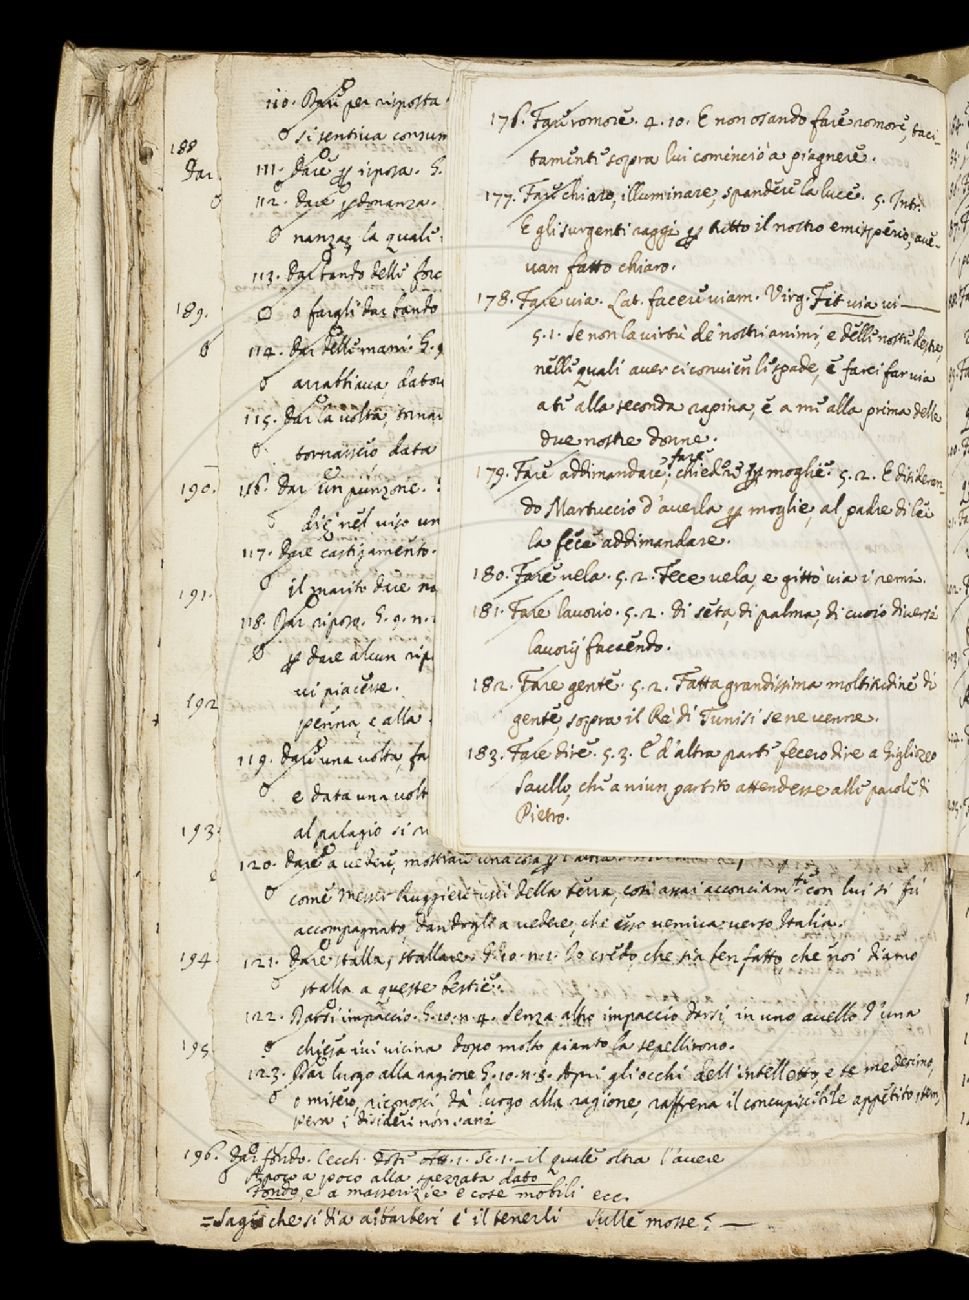 188
Dar
189.
190.
191.
192
193.
194.
195.
110. Dare per risposta
si sentiva consum
111. Dare riposa. G.
112. Dare perdonanza.
nanza, la quale
113. Dar bando delle forc
o fargli dar bando
114. Dar delle mani. G. 9
arrabbiava, dato
115. Dar la volta, tornar
data
116. Dar un punzone.
nel viso un
117. Dare castigamento.
il marito dare
118. Dar riposo. G. 9. n.
per dare alcun rip
vi piacesse.
penna, e alla
119. Dare una volta, fa
e data una volt
al palagio si
120. Dare a vedere, mostrare una cosa per l'altra
come Messer Ruggieri uscì della terra, così assai acconciamte con lui si fù
accompagnato, dandogli a vedere, che esso veniva verso Italia.
121. Dare stalla, stallare. G. 10. n. 2. Io credo, che sia ben fatto, che noi diamo
stalla a queste bestie.
122. Darsi impaccio. G. 10. n. 4. Senza altro impaccio darsi in uno avello d'una
chiesa ivi vicina dopo molto pianto la sepellirono.
123. Dar luogo alla ragione G. 10. n. 8. Apri gli occhi dell'intelletto, e te medesimo,
o misero, riconosci, dà luogo alla ragione, raffrena il concupiscibile appetito, tem,
pera i disideri non sani
196. Dar fondo. Cecch. Dote att. 1. Sc. 1. – il quale oltra l'avere
A poco a poco alla spezzata dato
Fondo, e a masserizie e cose mobili ecc.
= che si dia a' Barberi è il tenerli sulle mosse? —
176. Fare romore. 4. 10. E non osando fare romore, taci-
tamente sopra lui cominciò a piagnere.
177. Fare chiaro, illuminare, spandere la luce. 5. Intr.
E gli surgenti raggi per tutto il nostro emisperio, ave-
van fatto chiaro.
178. Fare via. Lat. facere viam. Virg. Fit via vi —
5. 1. Se non la virtù de' nostri animi, e delle nostre destre,
nelle quali aver ci convien le spade, e farci far via
a te alla seconda rapina, e a me alla prima delle
due nostre donne.
179. Fare addimandare, fare chiedere per moglie. 5. 2. E disideran-
do Martuccio d'averla per moglie, al padre di lei
la fece addimandare.
180. Fare vela. 5. 2. Fece vela, e gittò via i remi.
181. Fare lavorio. 5. 2. di seta, di palma, di cuoio diversi
lavorij facendo.
182. Fare gente. 5. 2. Fatta grandissima moltitudine di
gente, sopra il Re di Tunisi se ne venne.
183. Fare dire. 5. 3. E d'altra parte fecero dire a Gigliozzo
Saullo, che a niun partito attendesse alle parole di
Pietro.